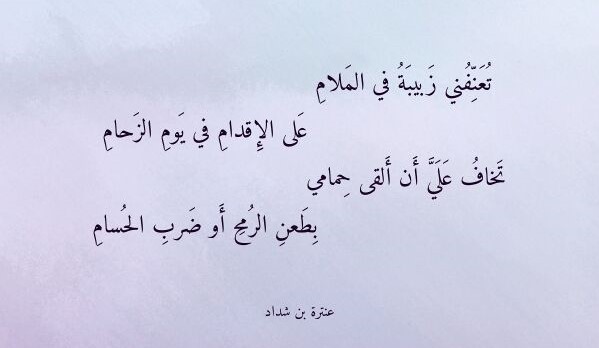 تُعَنِّفُني زَبيبَةُ في المَلامِ
عَلى الإِقدامِ في يَومِ الزَحامِ
تَخافُ عَلَيَّ أَن أَلقى حِمامي
بِطَعنِ الرُمحِ أَو ضَربِ الحُسامِ
عنترة بن شداد